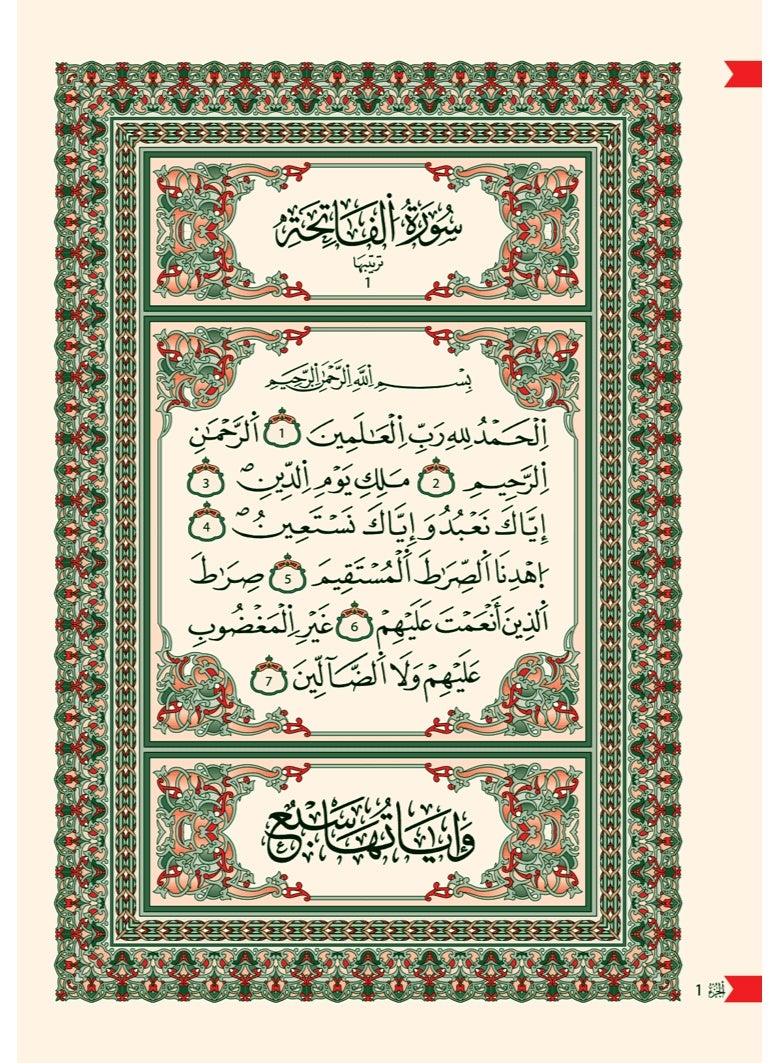 سُورَةُ اُ۬لْفَاتِحَةِ
ترتيبها
1
بِسْمِ اِ۬للَّهِ اِ۬لرَّحْمَٰنِ اِ۬لرَّحِيمِ
اِ۬لْحَمْدُ لِلهِ رَبِّ اِ۬لْعَٰلَمِينَ 1 اَ۬لرَّحْمَٰنِ
اِ۬لرَّحِيمِ 2 مَلِكِ يَوْمِ اِ۬لدِّينِۖ 3
إِيَّاكَ نَعْبُدُ وَإِيَّاكَ نَسْتَعِينُۖ 4
اُ۪هْدِنَا اَ۬لصِّرَٰطَ اَ۬لْمُسْتَقِيمَ 5 صِرَٰطَ
اَ۬لذِينَ أَنْعَمْتَ عَلَيْهِمْ 6 غَيْرِ اِ۬لْمَغْضُوبِ
عَلَيْهِمْ وَلَا اَ۬لضَّآلِّينَ 7
وَءَايَاتُهَا سَبْعٌ
الجزء 1